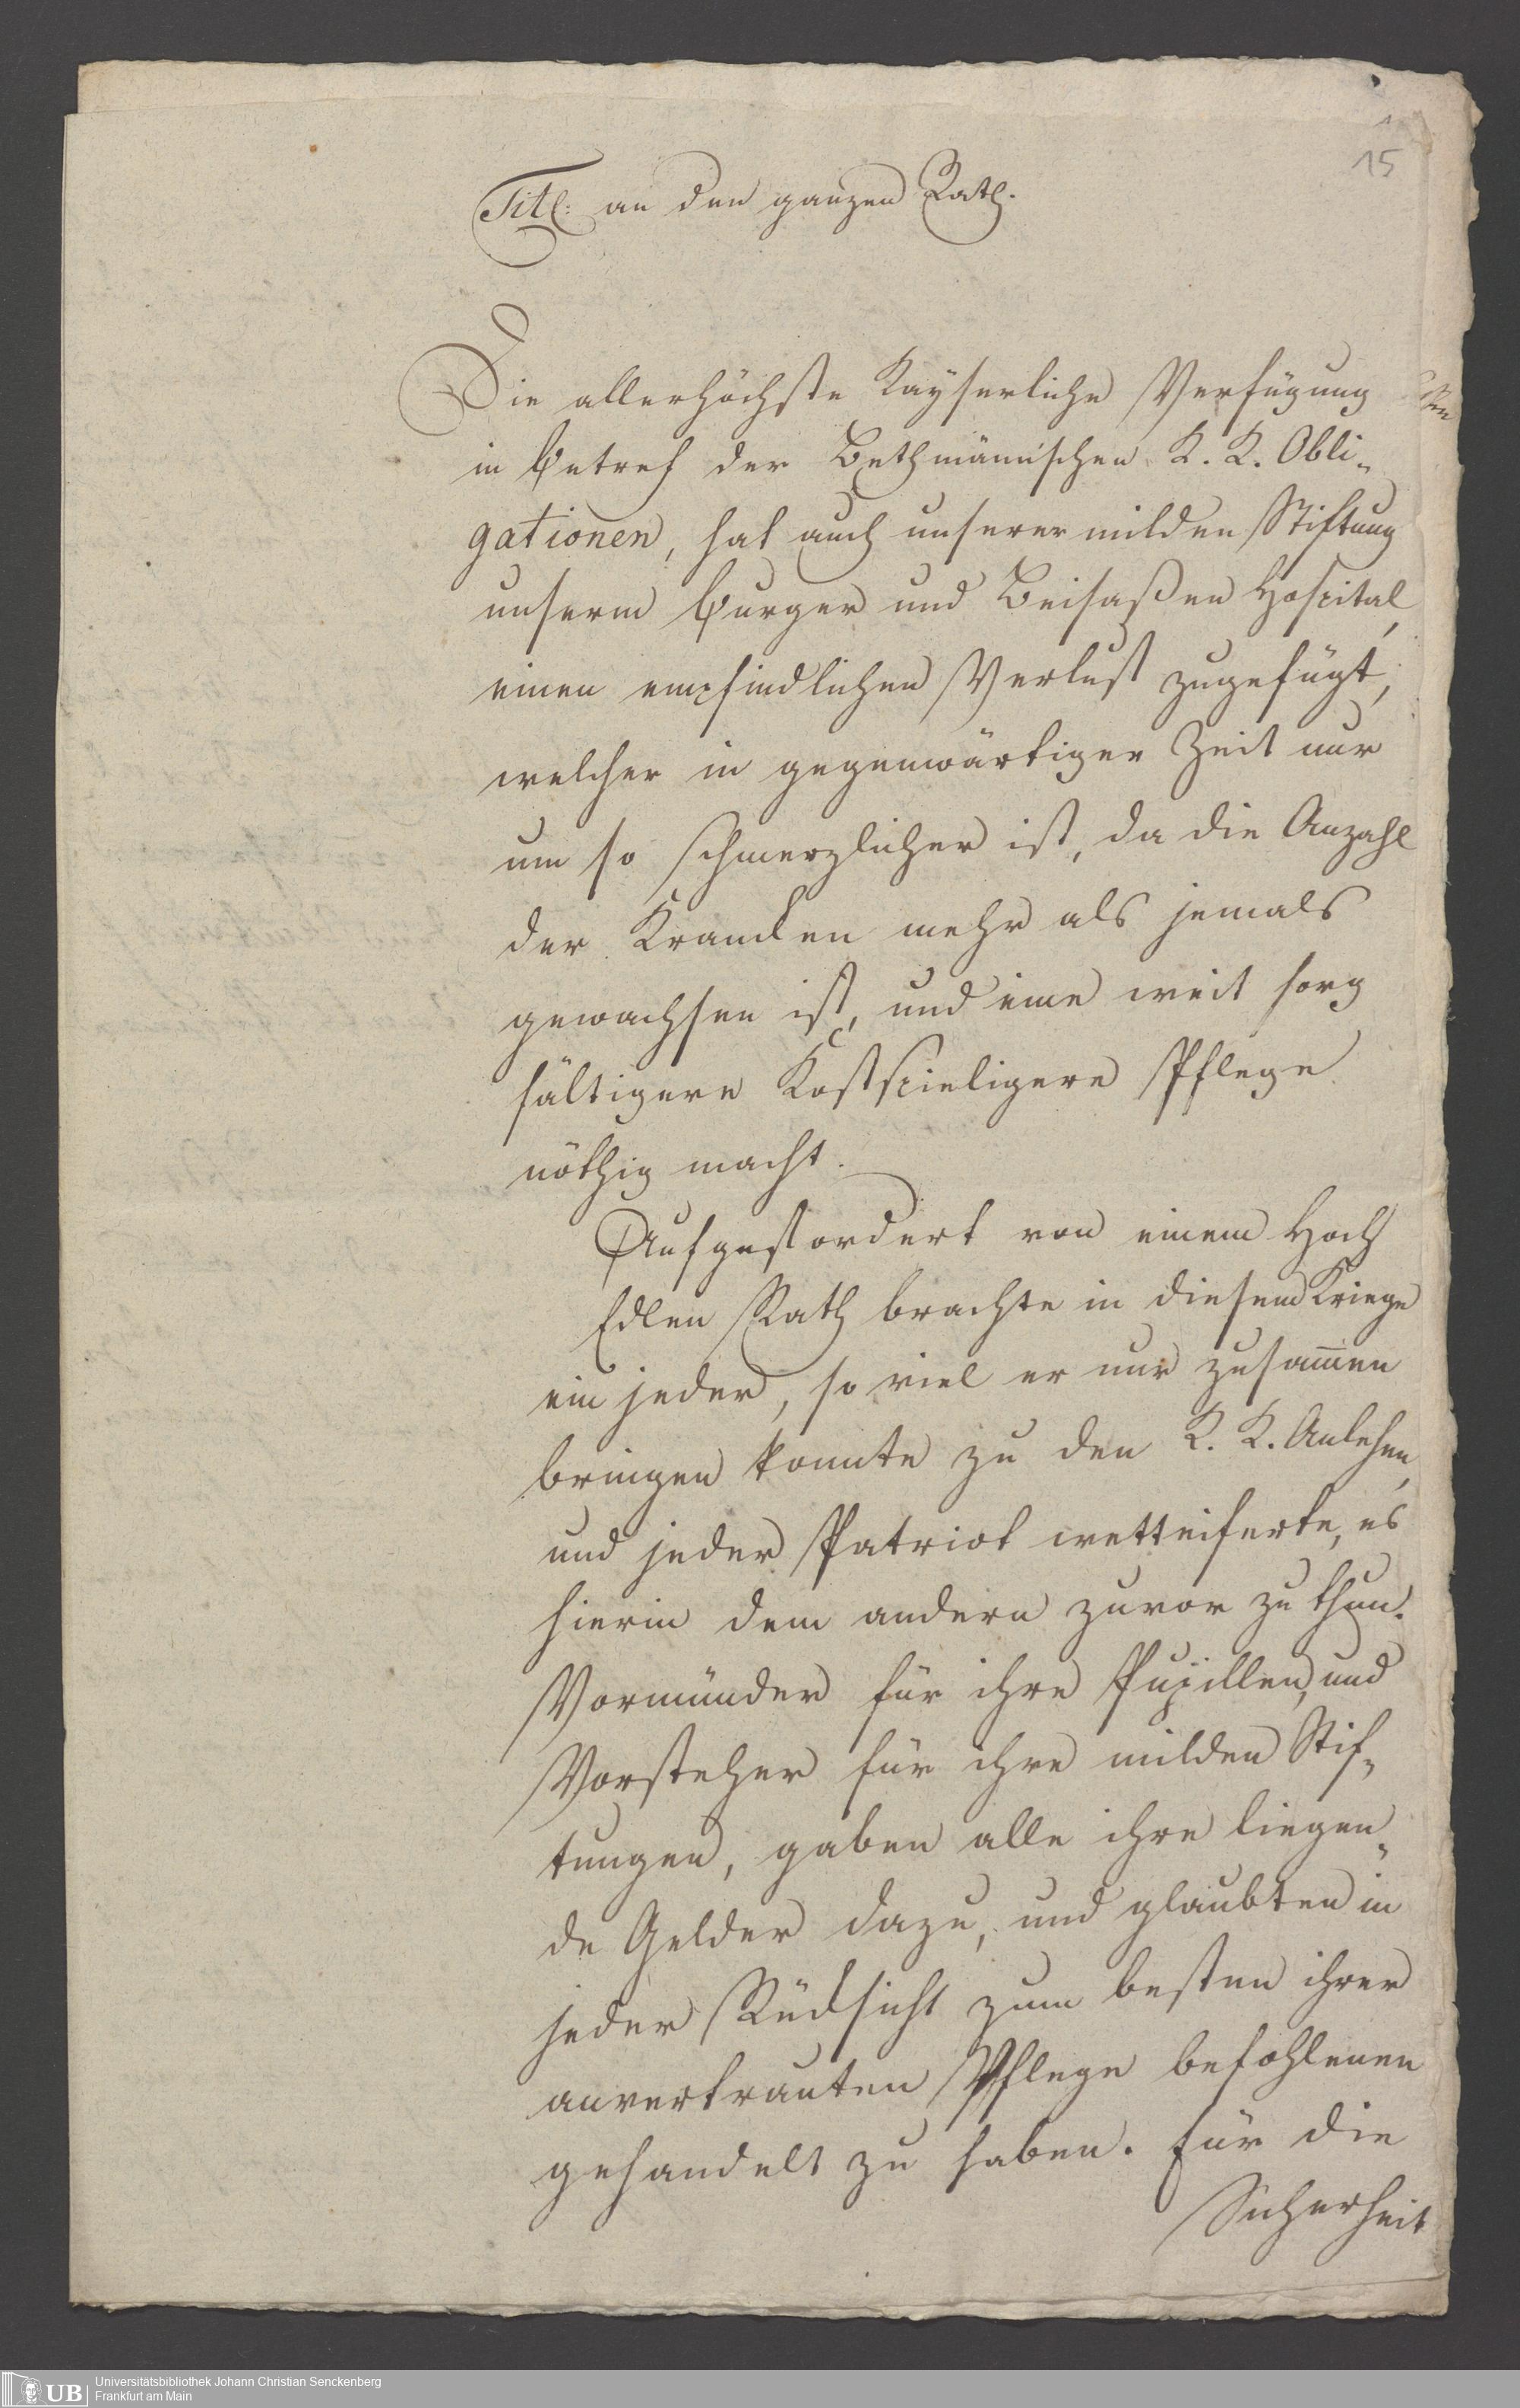 15
Titl: an den ganzen Rath.
Die allerhöchste Kayserliche Verfügung
in Betref der Bethmännischen K. K. Obli-
gationen, hat auch unserer milden Stiftung
unserm Burger und Beisaßen Hospital,
einen empfindlichen Verlust zugefügt,
welcher in gegenwärtiger Zeit nur
um so schmerzlicher ist, da die Anzahl
der Krancken mehr als jemals
gewachsen ist, und eine weit sorg
fältigere Kostspieligere Pflege
nöthig macht.
Aufgefordert von einem Hoch
Edlen Rath brachte in diesem Kriege
ein jeder, so viel er nur zusam̅en
bringen konnte zu den K. K. Anlehen,
und jeder Patriot wetteiferte, es
hierin dem andern zuvor zu thun.
Vormünder für ihre Pupillen, und
Vorsteher für ihre milden Stif-
tungen, gaben alle ihre liegen-
de Gelder dazu, und glaubten in
jeder Rücksicht zum besten ihrer
anvertrauten Pflege befohlenen
gehandelt zu haben. Für die
Sicherheit
UB
Universitätsbibliothek Johann Christian Senckenberg
Frankfurt am Main